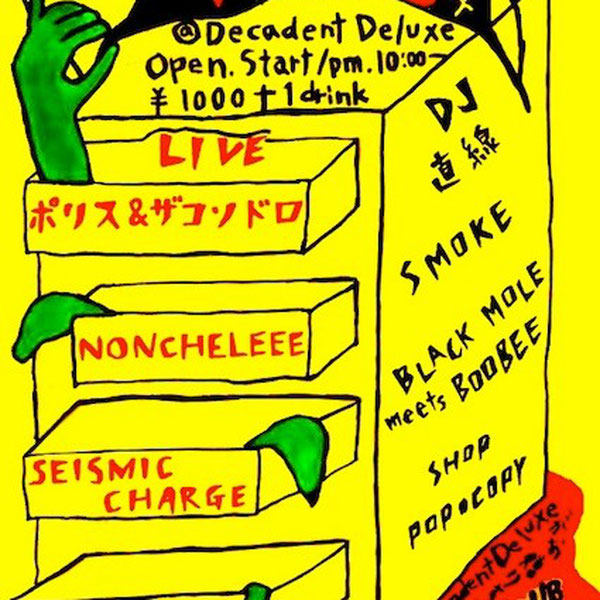 @Decadent Deluxe
Open.Start/pm.10:00~
¥1000+1drink
LIVE
ポリス&ザコソドロ
NONCHELEEE
SEISMIC
CHARGE
DJ
直線
SMOKE
BLACK MOLE
meets BOOBEE
SHOP
POP●COPY
adentDeluxe